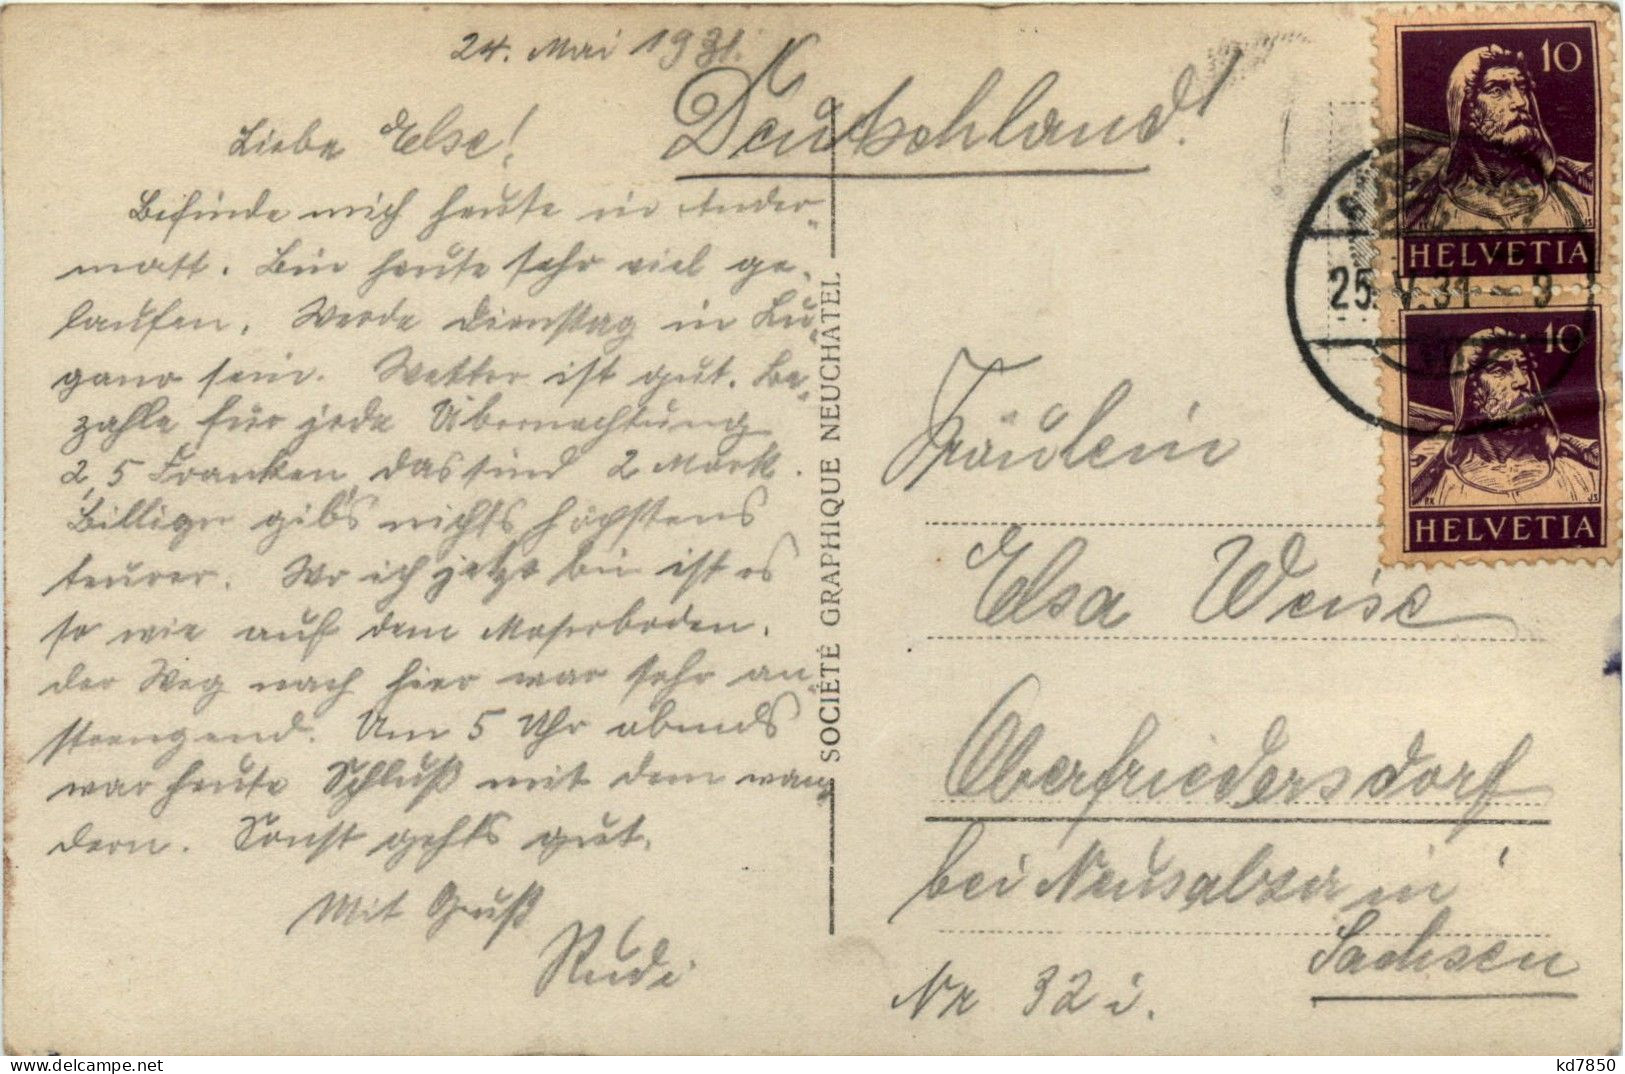 24. Mai 1931.
Liebe Else!
Befinde mich heute in Ander-
matt. Bin heute sehr viel ge-
laufen. Werde Dienstag in Lu-
gano sein. Wetter ist gut. Be-
zahle für jede Übernachtung
2,5 Franken, das sind 2 Mark.
Billiger gibts nichts höchstens
teurer. Wo ich jetzt bin ist es
so wie auf dem Moserboden.
der Weg nach hier war sehr an-
strengend. Um 5 Uhr abends
war heute Schluß mit dem wan-
dern. Sonst gehts gut.
Mit Gruß
Rudi
SOCIÉTÉ GRAPHIQUE NEUCHATEL
Deutschland!
Fräulein
Elsa Weise
Oberfriedersdorf
bei Neusalza in
Sachsen
Nr 32 i.
10
HELVETIA
25. V. 31 - 9
10
HELVETIA
kd7850